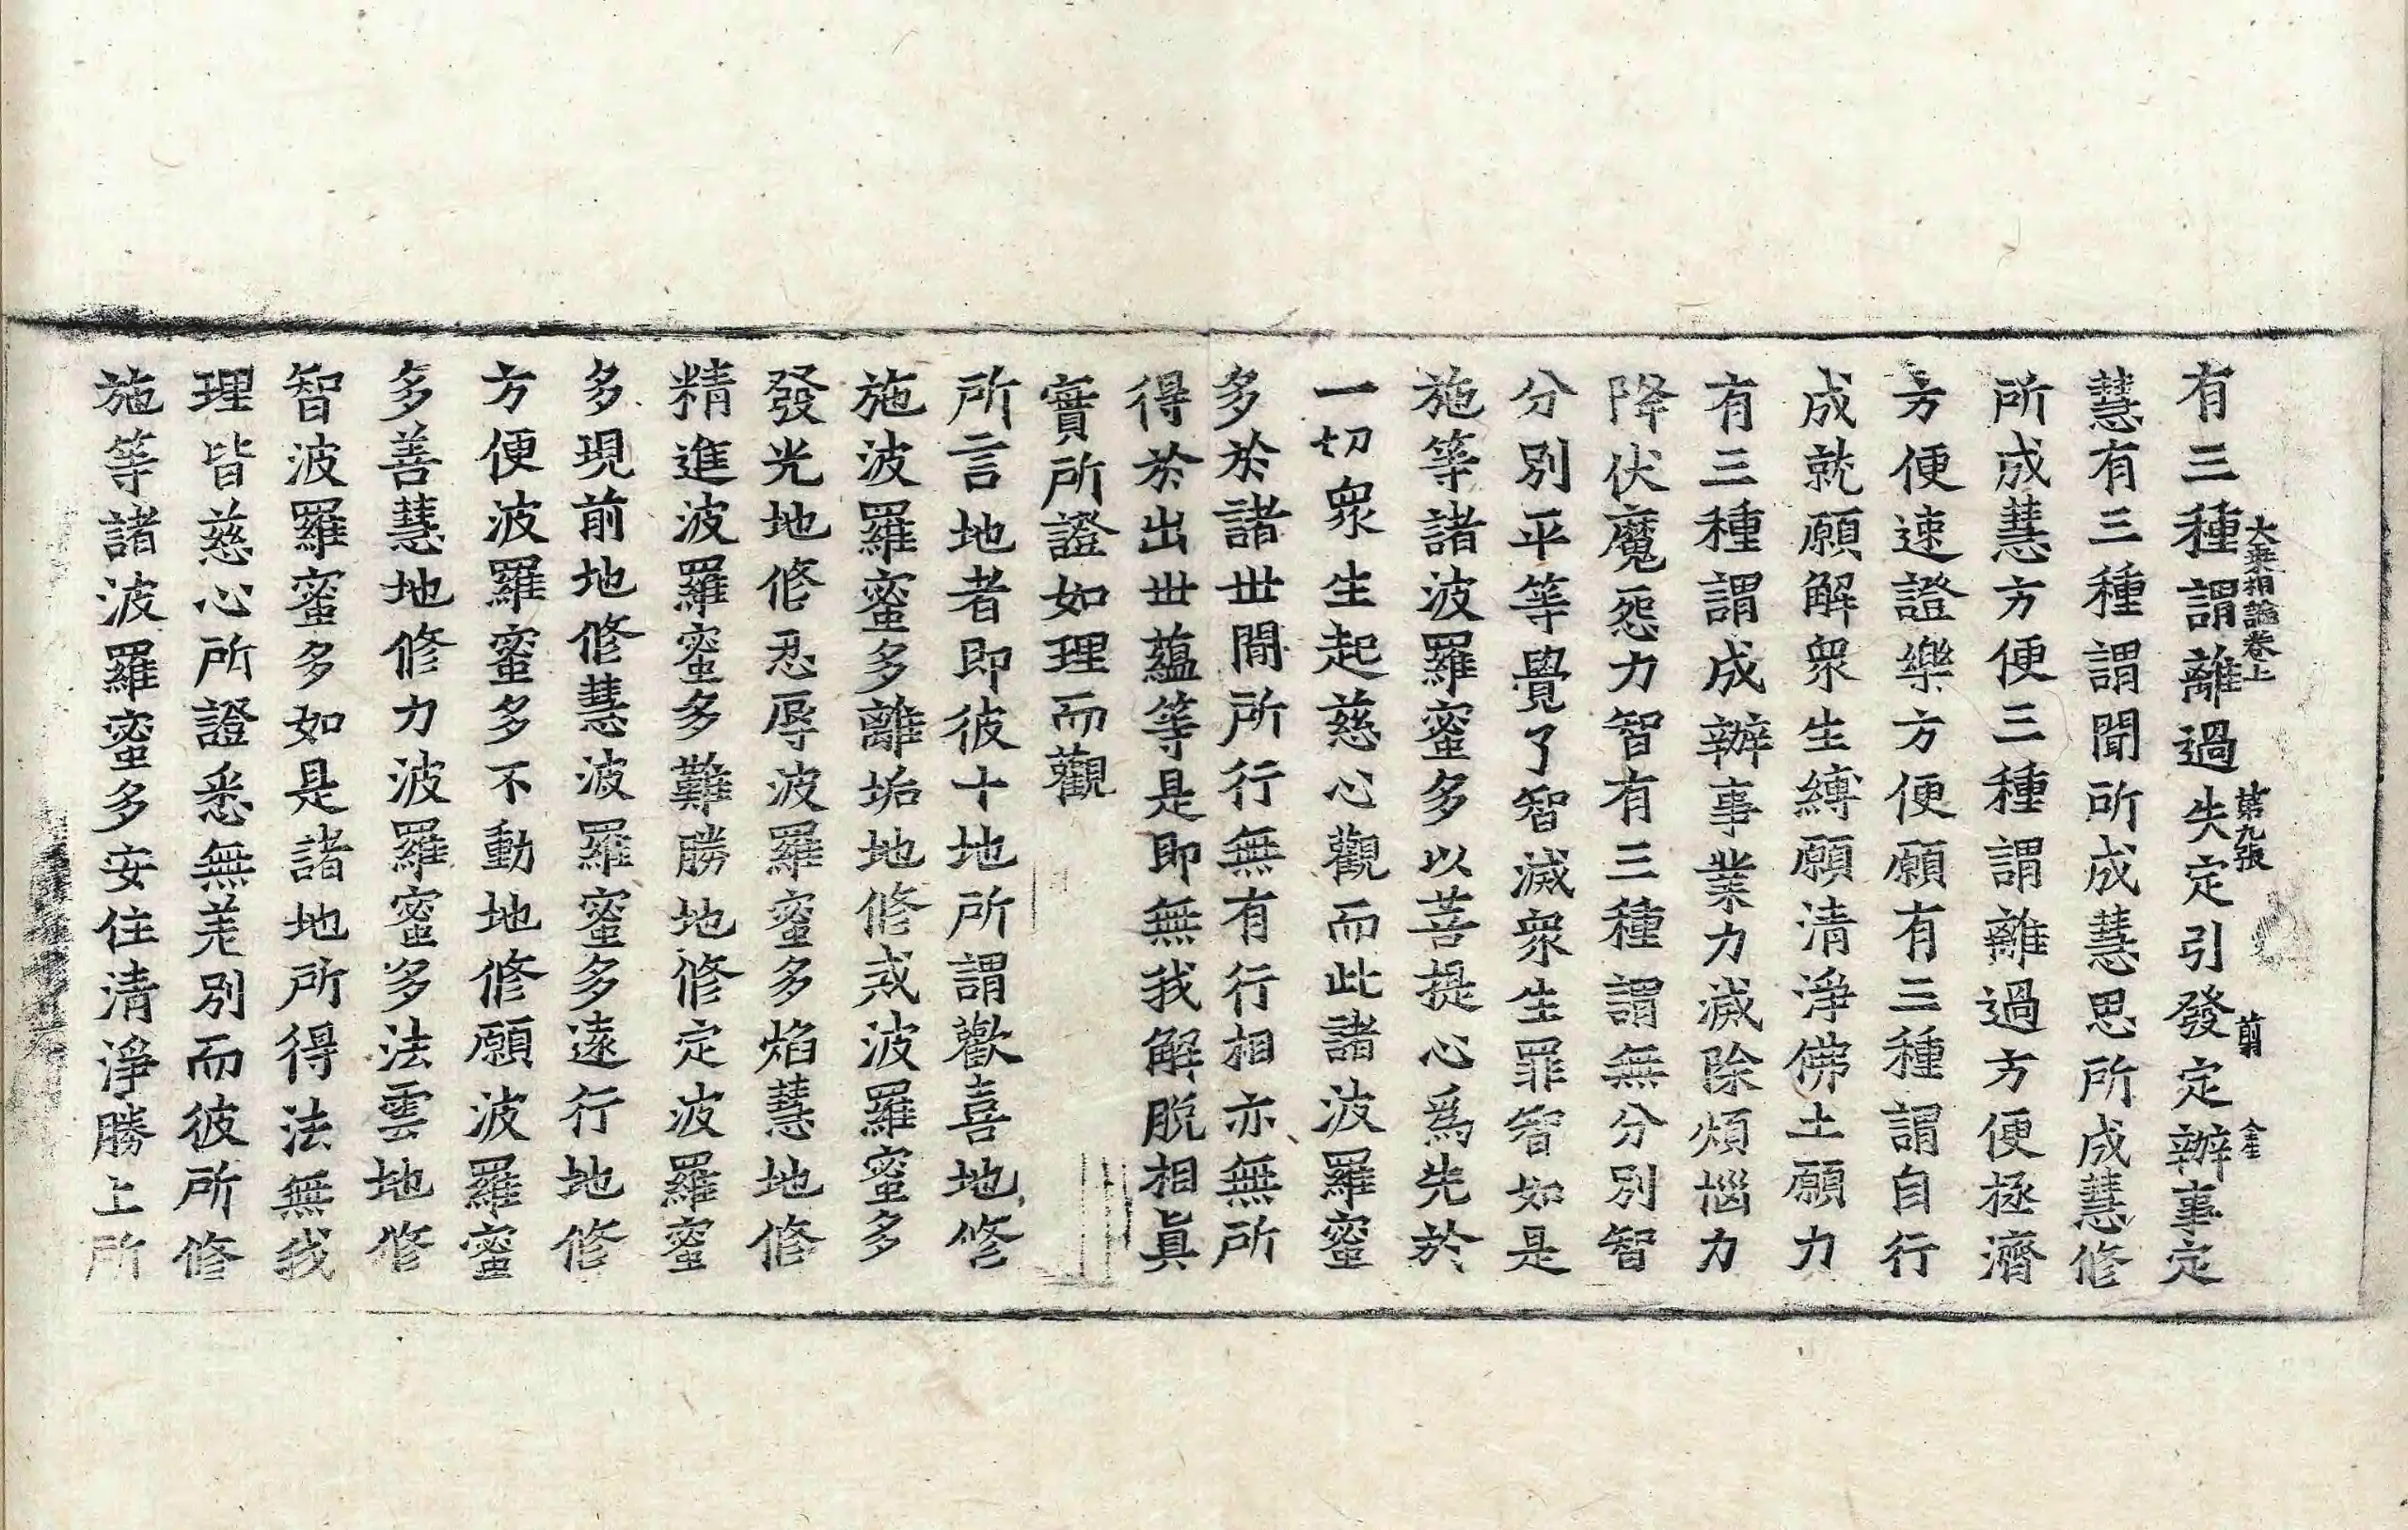 大乘相論卷上 第九張 翦 金
有三種謂離過失定引發定辦事定
慧有三種謂聞所成慧思所成慧修
所成慧方便三種謂離過方便拯濟
方便速證樂方便願有三種謂自行
成就願解衆生縛願清淨佛土願力
有三種謂成辦事業力滅除煩惱力
降伏魔怨力智有三種謂無分別智
分別平等覺了智滅衆生罪智如是
施等諸波羅蜜多以菩提心爲先於
一切衆生起慈心觀而此諸波羅蜜
多於諸世閒所行無有行相亦無所
得於出世蘊等是即無我解脫相眞
實所證如理而觀
所言地者即彼十地所謂歡喜地修
施波羅蜜多離垢地修戒波羅蜜多
發光地修忍辱波羅蜜多焰慧地修
精進波羅蜜多難勝地修定波羅蜜
多現前地修慧波羅蜜多遠行地修
方便波羅蜜多不動地修願波羅蜜
多善慧地修力波羅蜜多法雲地修
智波羅蜜多如是諸地所得法無我
理皆慈心所證悉無差別而彼所修
施等諸波羅蜜多安住清淨勝上所